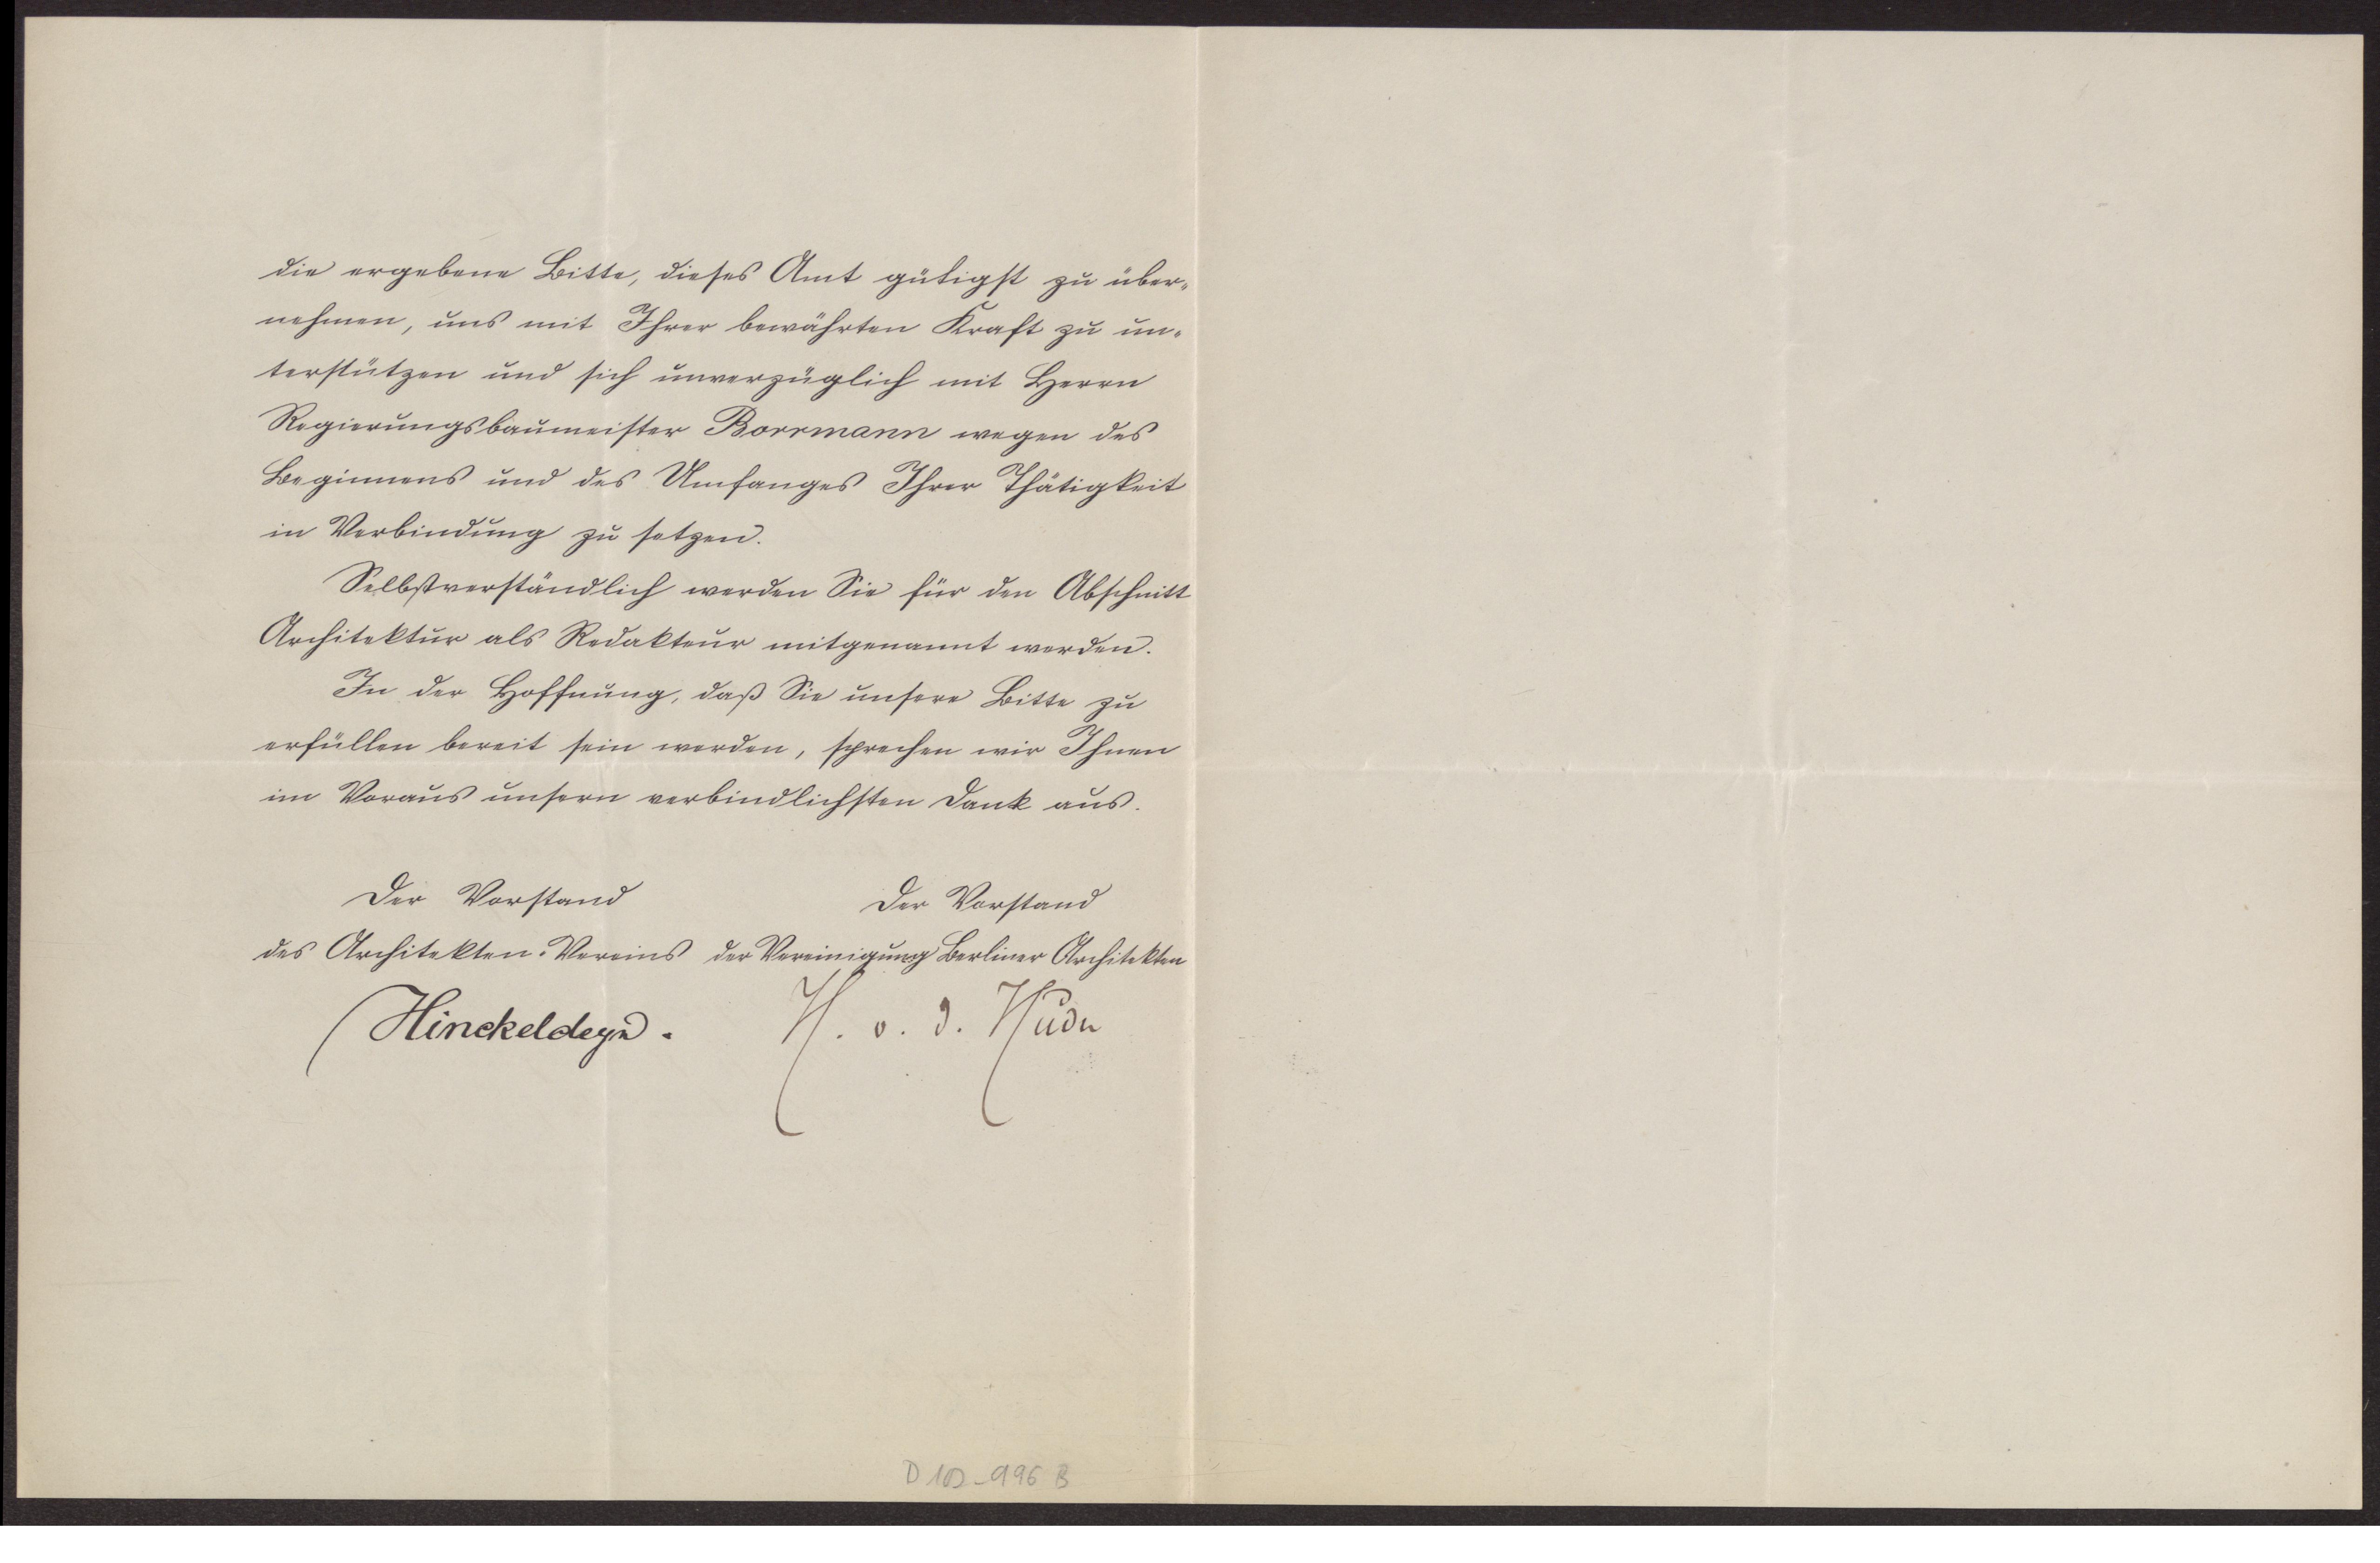 die ergebene Bitte, dieses Amt gütigst zu über-
nehmen, uns mit Ihrer bewährten Kraft zu un-
terstützen und sich unverzüglich mit Herrn
Regierungsbaumeister Borrmann wegen des
Beginnens und des Umfanges Ihrer Thätigkeit
in Verbindung zu setzen.
Selbstverständlich werden Sie für den Abschnitt
Architektur als Redakteur mitgenannt werden.
In der Hoffnung, daß Sie unsere Bitte zu
erfüllen bereit sein werden, sprechen wir Ihnen
im Voraus unsern verbindlichsten Dank aus.
Der Vorstand Der Vorstand
des Architekten-Vereins der Vereinigung Berliner Architekten
Hinckeldeyn. H. v. d. Hude
D 102-996 B